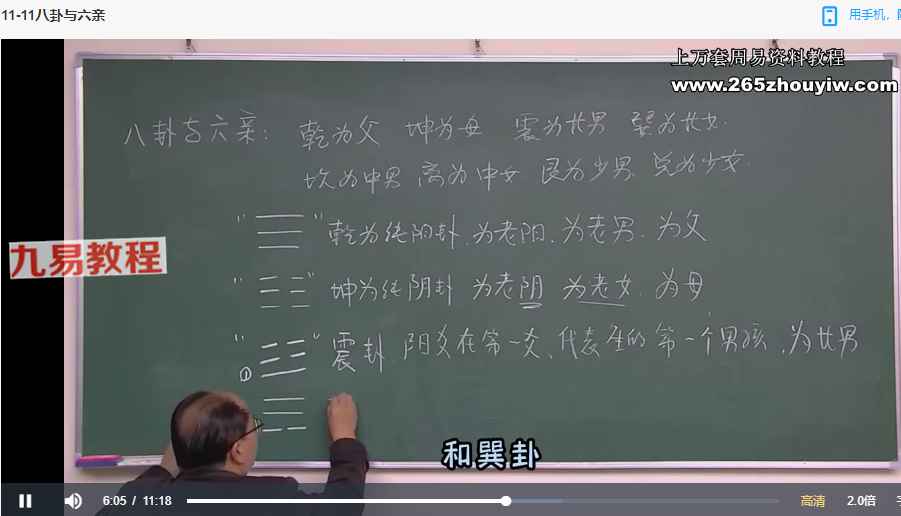 11-11八卦与六亲
用手机,
上万套周易资料教程
www.265zhouyiw.com
八卦与六亲: 乾为父 坤为母 震为长男 巽为长女.
坎为中男 离为中女 艮为少男 兑为少女.
九易教程
乾为纯阳卦.为老阳.为老男.为父
坤为纯阴卦 为老阴 为老女.为母
① 震卦.阳爻在第一爻、代表生的第一个男孩,为长男
和巽卦
6:05 / 11:18
高清 2.0倍